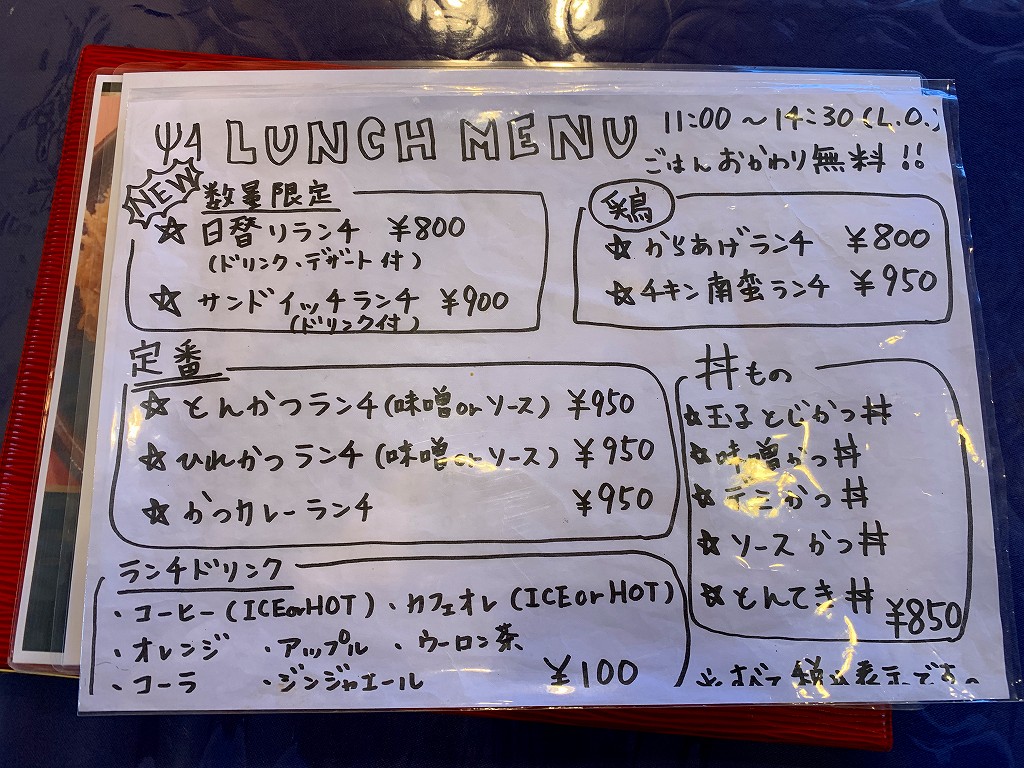 LUNCH MENU
11:00～14:30(L.O.)
ごはんおかわり無料!!
NEW
数量限定
☆日替りランチ ¥800
(ドリンク、デザート付)
☆サンドイッチランチ ¥900
(ドリンク付)
鶏
☆からあげランチ ¥800
☆チキン南蛮ランチ ¥950
定番
☆とんかつランチ(味噌orソース) ¥950
☆ひれかつランチ(味噌orソース) ¥950
☆かつカレーランチ ¥950
丼もの
☆玉子とじかつ丼
☆味噌かつ丼
☆テニかつ丼
☆ソースかつ丼
☆とんてき丼
¥850
ランチドリンク
・コーヒー(ICEorHOT)・カフェオレ(ICEorHOT)
・オレンジ ・アップル ・ウーロン茶
・コーラ ・ジンジャエール ¥100
※すべて税込表示です。